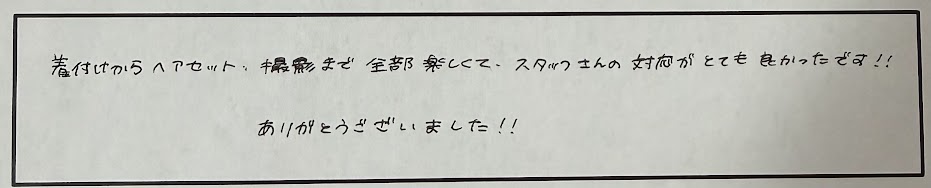 着付けからヘアセット、撮影まで全部楽しくて、スタッフさんの対応がとても良かったです!!
ありがとうございました!!